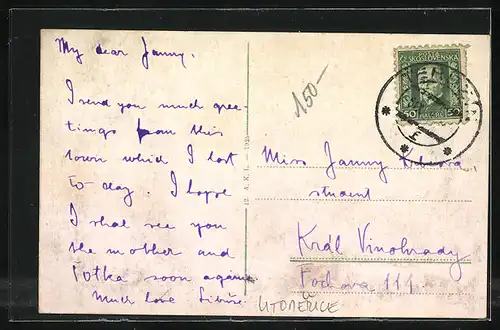 My dear Janny.
I send you much gree-
tings from this
town which I lost
to-day. I hope
I shal see you
the mother and
Totka soon again.
Much love Libuše.
150–
POSTA
ČESKOSLOVENSKÁ
50
12. A. K. L. — 192
Miss Janny
student
Král Vinohrady
Fochova 111.
LITOMĚŘICE